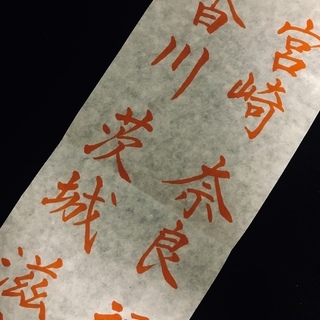 宮崎
奈良
香川
茨城
滋